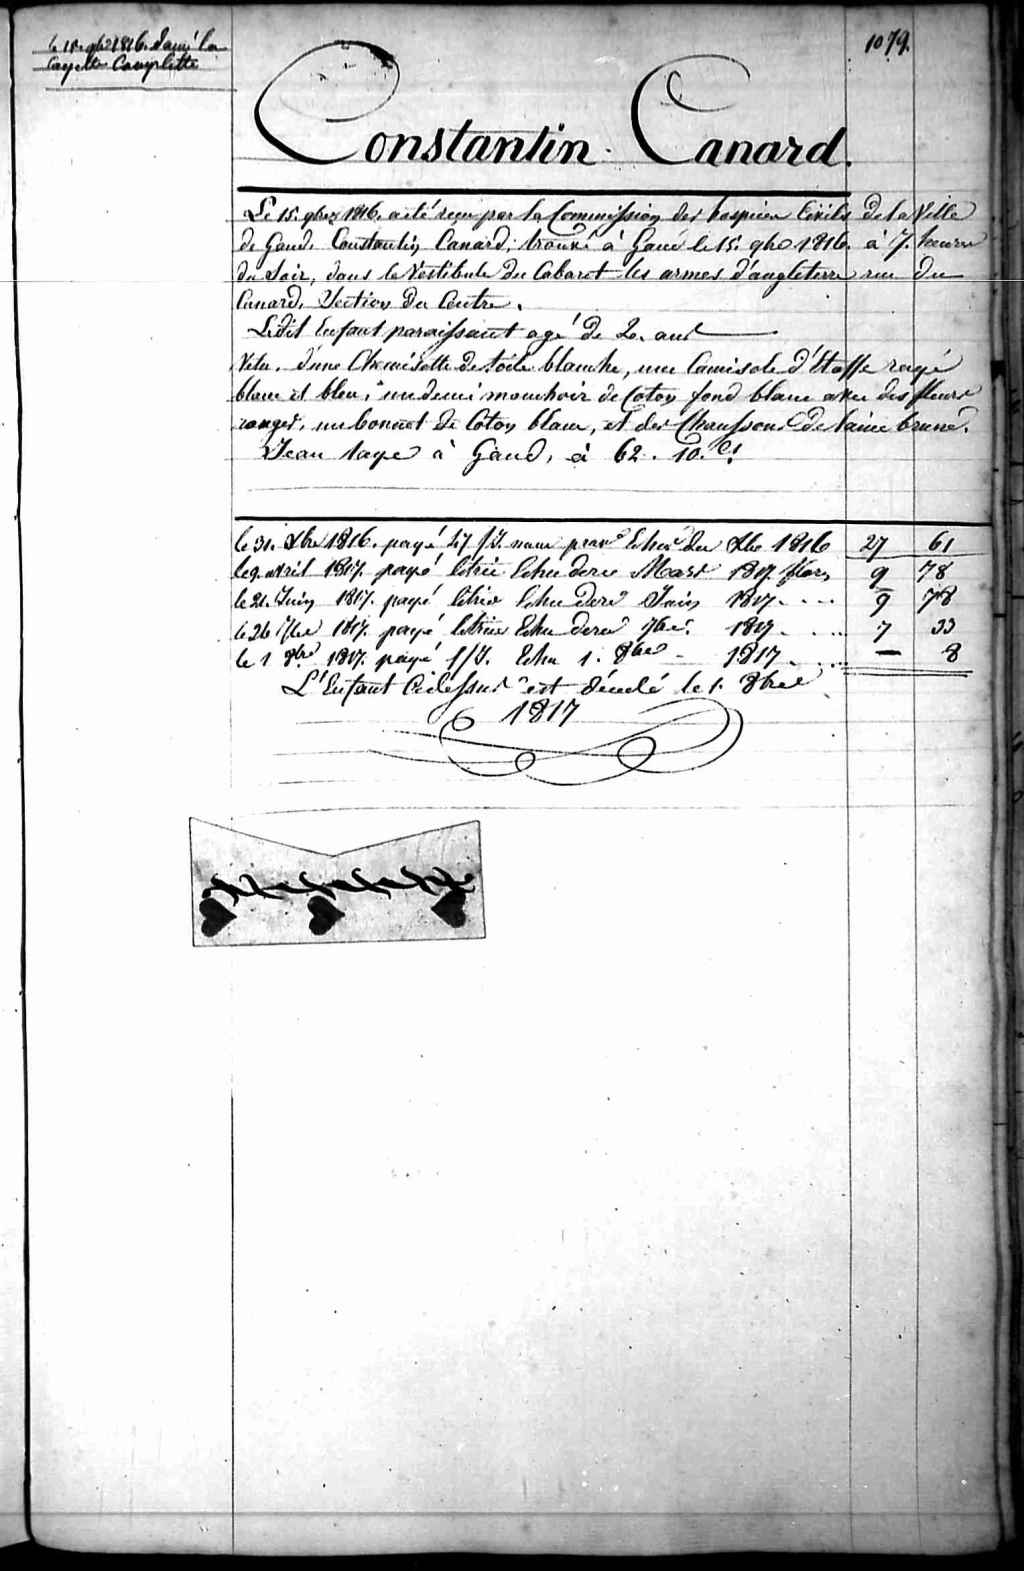 le 15. 9bre 1816. donné la
Cayette Complette
1079.
Constantin Canard.
Le 15. 9bre 1816. a été reçu par la Commission des hospices Civils de la Ville
de Gand, Constantin Canard, trouvé à Gand le 15. 9bre 1816. à 7. heures
du Soir, dans le Vestibule du Cabaret les armes d'angleterre rue du
Canard, Section du Centre.
Ledit Enfant paraissant agé de 2. ans
Vetu, d'une Chemisette de toile blanche, une Camisole d'Etoffe rayé
blanc et bleu, un demi mouchoir de Coton fond blanc avec des fleurs
rouges, un bonnet de Coton blanc, et des Chaussons de laine brune.
Jean à Gand, à 62. 10. Cs
le 31. Xbre 1816. payé 47 f/J. Echu du Xbre 1816 27 61
le 9. avril 1817. payé letrie Echu dere Mars 1817. 9 78
le 21. Juin 1817. payé letrie Echu dere Juin 1817. . . . 9 78
le 26 7bre 1817. payé letrie Echu dere 7bre. 1817. . . . 7 33
le 1 8bre 1817. payé f/J. Echu 1. 8bre - 1817. . . . — 8
L'Enfant Cidessus est décédé le 1. 8bre
1817